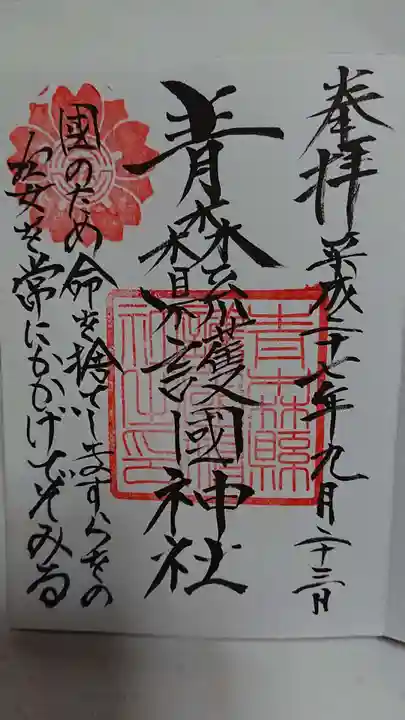 奉拝
平成二十七年九月二十三日
青森縣護國神社
國のため命を捨てしますらをの
姿を常にかかげてぞみる
青森縣
護國神
社之印